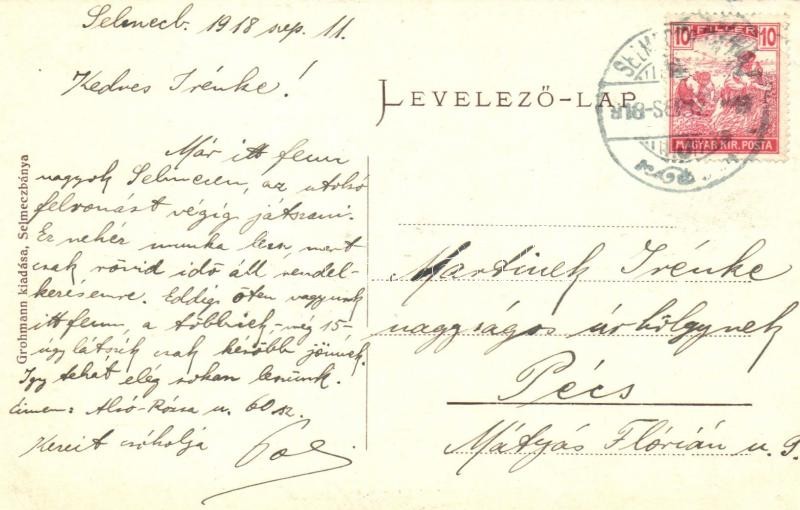 Selmecb. 1918 sep. 11.
Kedves Irénke!
Már itt fenn
vagyok Selmecen, az utolsó
felvonást végig játszani.
Ez nehéz munka lesz, mert
csak rövid idő áll rendel-
kezésemre. Eddig öten vagyunk
itt fenn, a többiek - vag 15 -
úgy látszik csak később jönnek.
Így tehát elég sokan leszünk.
Címem: Alsó-Rózsa u. 60 sz.
Kezeit csókolja
Grohmann kiadása, Selmeczbánya
LEVELEZŐ-LAP
10 FILLÉR 10
MAGYAR KIR. POSTA
Martinek Irénke
nagyságos úrhölgynek
Pécs
Mátyás Flórián u.